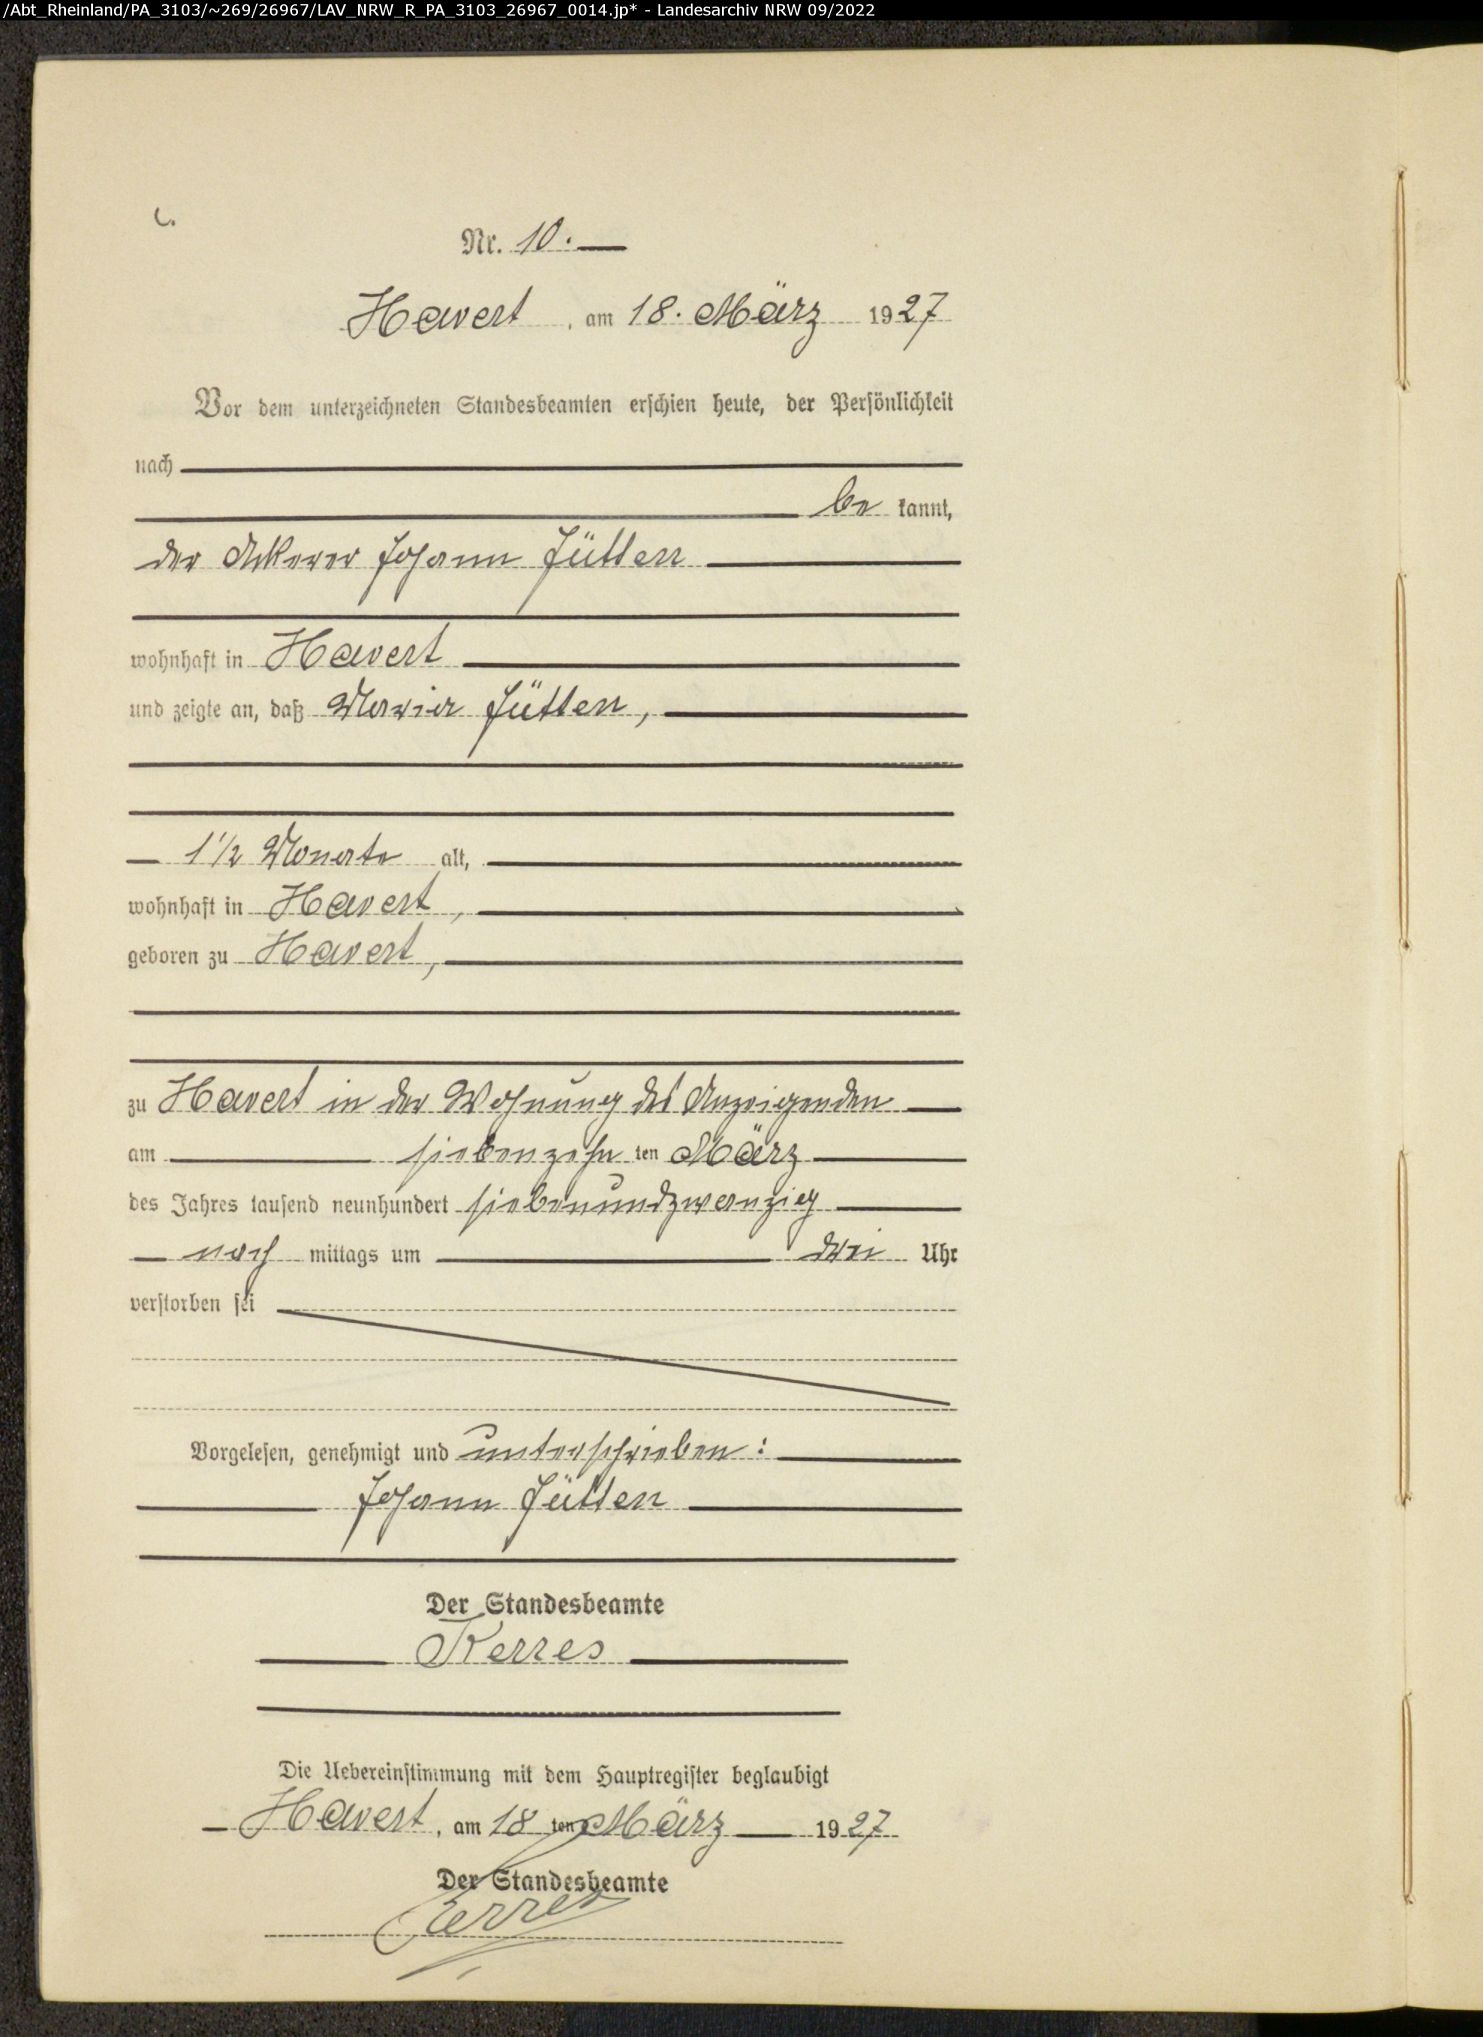 /Abt_Rheinland/PA_3103/~269/26967/LAV_NRW_R_PA_3103_26967_0014.jp* - Landesarchiv NRW 09/2022
C.
Nr. 10.
Havert, am 18. März 1927
Vor dem unterzeichneten Standesbeamten erschien heute, der Persönlichkeit
nach
be kannt,
der Ackerer Johann Jütten
wohnhaft in Havert
und zeigte an, daß Maria Jütten,
1 1/2 Monate alt,
wohnhaft in Havert,
geboren zu Havert,
zu Havert in der Wohnung des Anzeigenden
am siebenzehn ten März
des Jahres tausend neunhundert siebenundzwanzig
nach mittags um drei Uhr
verstorben sei
Vorgelesen, genehmigt und unterschrieben:
Johann Jütten
Der Standesbeamte
Kerres
Die Uebereinstimmung mit dem Hauptregister beglaubigt
Havert, am 18 ten März 1927
Der Standesbeamte
Kerres